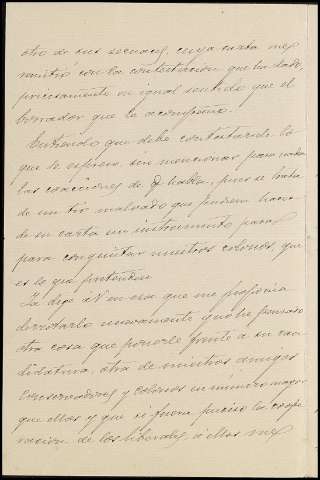 otro de sus secuaces, cuya carta me
remitió con la contestación que ha dado,
precisamente en igual sentido que el
borrador que le acompaño.
Entiendo que debe contestarle lo
que le expreso, sin mencionar para nada
las coacciones de q habla, pues se trata
de un tio malvado que pudiera hacer
de su carta un instrumento para
para conquistar nuestros colonos, que
es lo que pretenden
Ya dije a V en esa que me proponia
derrotarlo nuevamente que he pensado
otra cosa que ponerle frente a su can
didatura, otra de nuestros amigos
Conservadores y colonos en número mayor
que ellos y que si fuera preciso la coope
ración de los liberales, a ellos me